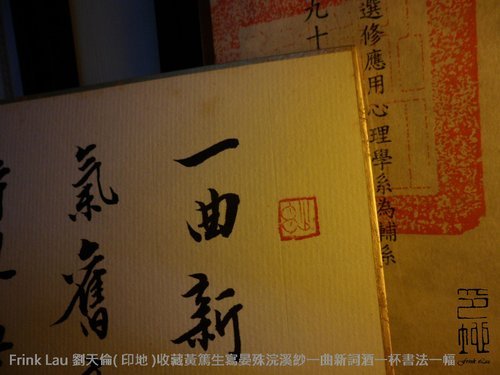 選修應用心理學系為輔系
九十
一曲新
氣舊
Frink Lau 劉天倫( 印地 )收藏黃篤生寫晏殊浣溪紗一曲新詞酒一杯書法一幅